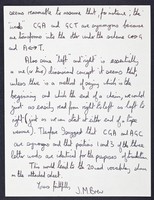 seems reasonable to assume that for instance, the
orders CGA and GCT are synonymous because
one transforms into the other under the scheme C⇔G
and A⇔T.
Also since "left and right" is essentially
a one (or two) dimensional concept it seems that,
unless there is a method of saying which is the
beginning and which the end of a chain, we could
just as easily read from right to left as left to
right (just as we can start at either end of a tape
). Therefore I suggest that CGA and AGC
are synonyms and that positions 1 and 3 of the three
letter words are identical for the purposes of translation.
This would lead to the 20 word vocabulary shown
in the attached sheet.
Yours faithfully,
J.M.